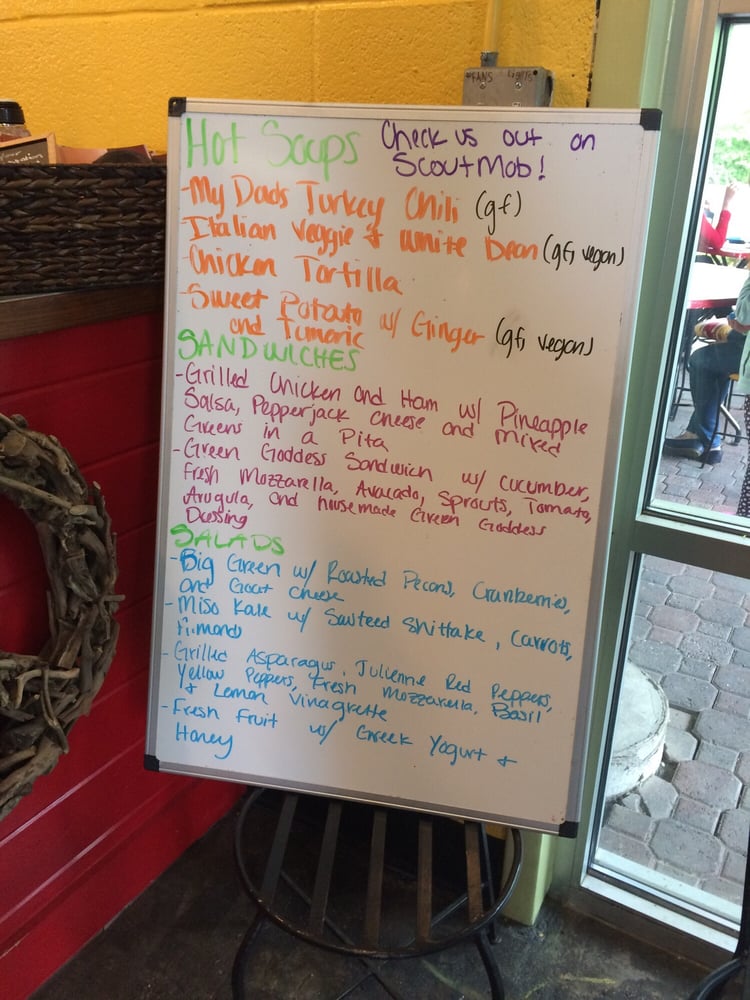 #FANS Lights
Hot Soups Check us out on
ScoutMob!
-My Dads Turkey Chili (gf)
Italian Veggie & White Bean (gf, vegan)
-Chicken Tortilla
-Sweet Potato w/ Ginger (gf, vegan)
and Tumeric
SANDWICHES
-Grilled Chicken and Ham w/ Pineapple
Salsa, Pepperjack cheese and mixed
Greens in a Pita
-Green Goddess Sandwich w/ cucumber,
Fresh Mozzarella, Avacado, Sprouts, Tomato,
Arugula, and housemade Green Goddess
Dressing
SALADS
-Big Green w/ Roasted Pecans, Cranberries,
and Goat Cheese
-Miso Kale w/ Sauteed Shittake, Carrots,
Almonds
-Grilled Asparagus, Julienne Red Peppers,
Yellow Peppers, Fresh Mozzarella, Basil
& Lemon Vinagrette
-Fresh Fruit w/ Greek Yogurt &
Honey